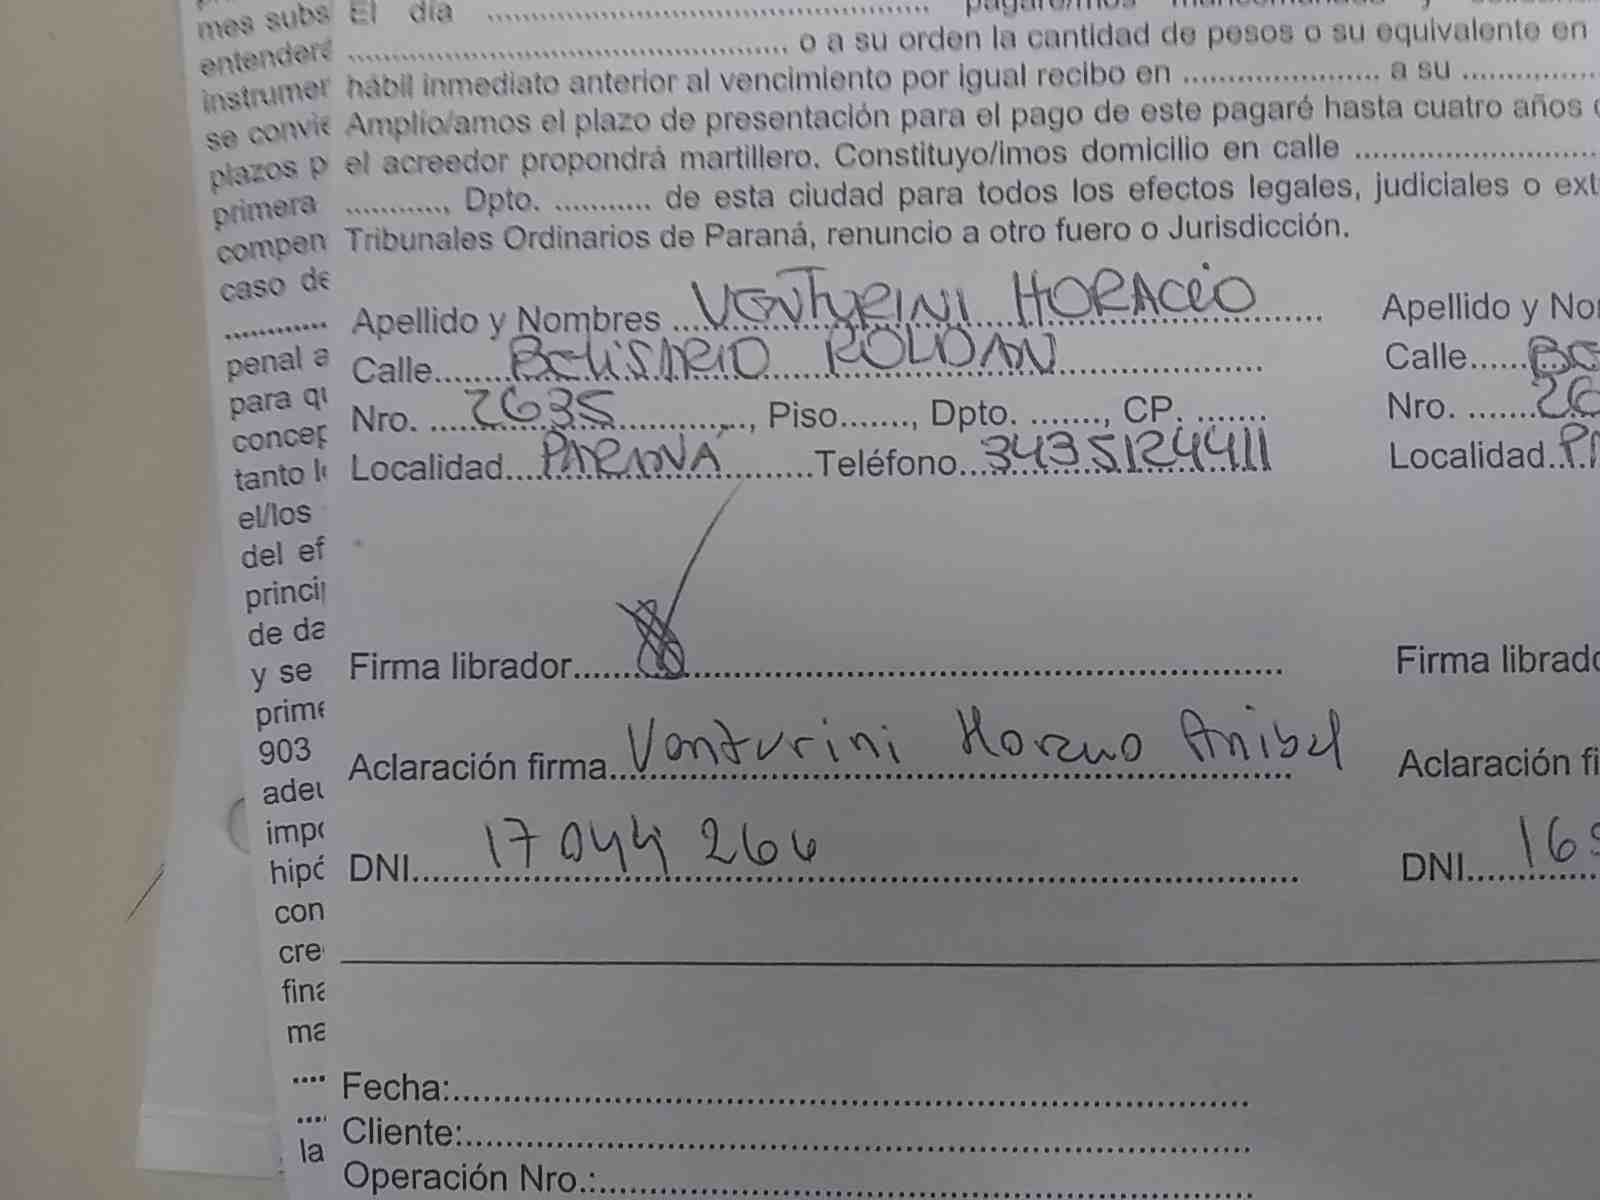 mes subs
entenderá
instrumen
se convie
plazos p
primera
compen
caso de
............
penal a
para qu
concep
tanto lo
el/los
del ef
princip
de da
y se
prime
903
adeu
impo
hipó
con
cre
fina
ma
....
....
la
El día ............................................
............................................, o a su orden la cantidad de pesos o su equivalente en
hábil inmediato anterior al vencimiento por igual recibo en ..................... a su ...............
Amplío/amos el plazo de presentación para el pago de este pagaré hasta cuatro años
el acreedor propondrá martillero. Constituyo/imos domicilio en calle ..........................
..........., Dpto. ........... de esta ciudad para todos los efectos legales, judiciales o ext
Tribunales Ordinarios de Paraná, renuncio a otro fuero o Jurisdicción.
Apellido y Nombres VENTURINI HORACIO
Calle BELISARIO ROLDAN
Nro. 2635, Piso......., Dpto. ......., CP. .......
Localidad PARANÁ Teléfono 3435124411
Firma librador
Aclaración firma Venturini Horacio Anibal
DNI 17 044 266
Apellido y No
Calle BE
Nro. 26
Localidad PA
Firma librado
Aclaración fi
DNI 16
Fecha:
Cliente:
Operación Nro.: